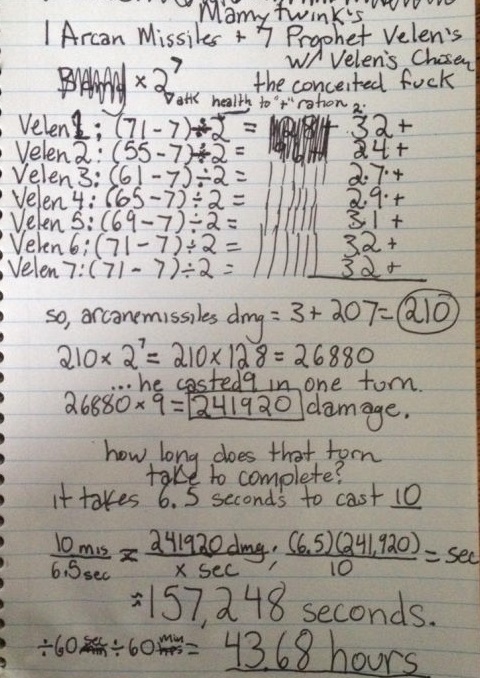 Mamytwink's
1 Arcan Missiles + 7 Prophet Velen's
w/ Velen's Chosen
× 2⁷ the conceited fuck
atk health to "+" ration 2:
Velen 1: (71-7)÷2 = 32+
Velen 2: (55-7)÷2 = 24+
Velen 3: (61-7)÷2 = 27+
Velen 4: (65-7)÷2 = 29+
Velen 5: (69-7)÷2 = 31+
Velen 6: (71-7)÷2 = 32+
Velen 7: (71-7)÷2 = 32+
so, arcanemissiles dmg = 3+207= 210
210 × 2⁷ = 210×128 = 26880
...he casted 9 in one turn.
26880×9 = 241920 damage.
how long does that turn
take to complete?
it takes 6.5 seconds to cast 10
10 mis / 6.5 sec = 241920 dmg / x sec ; (6.5)(241,920) / 10 = sec
≈157,248 seconds.
÷60 ÷60 = 43.68 hours